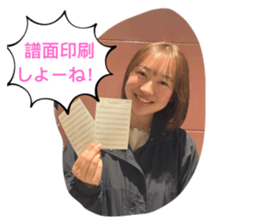 譜面印刷
しよーね!